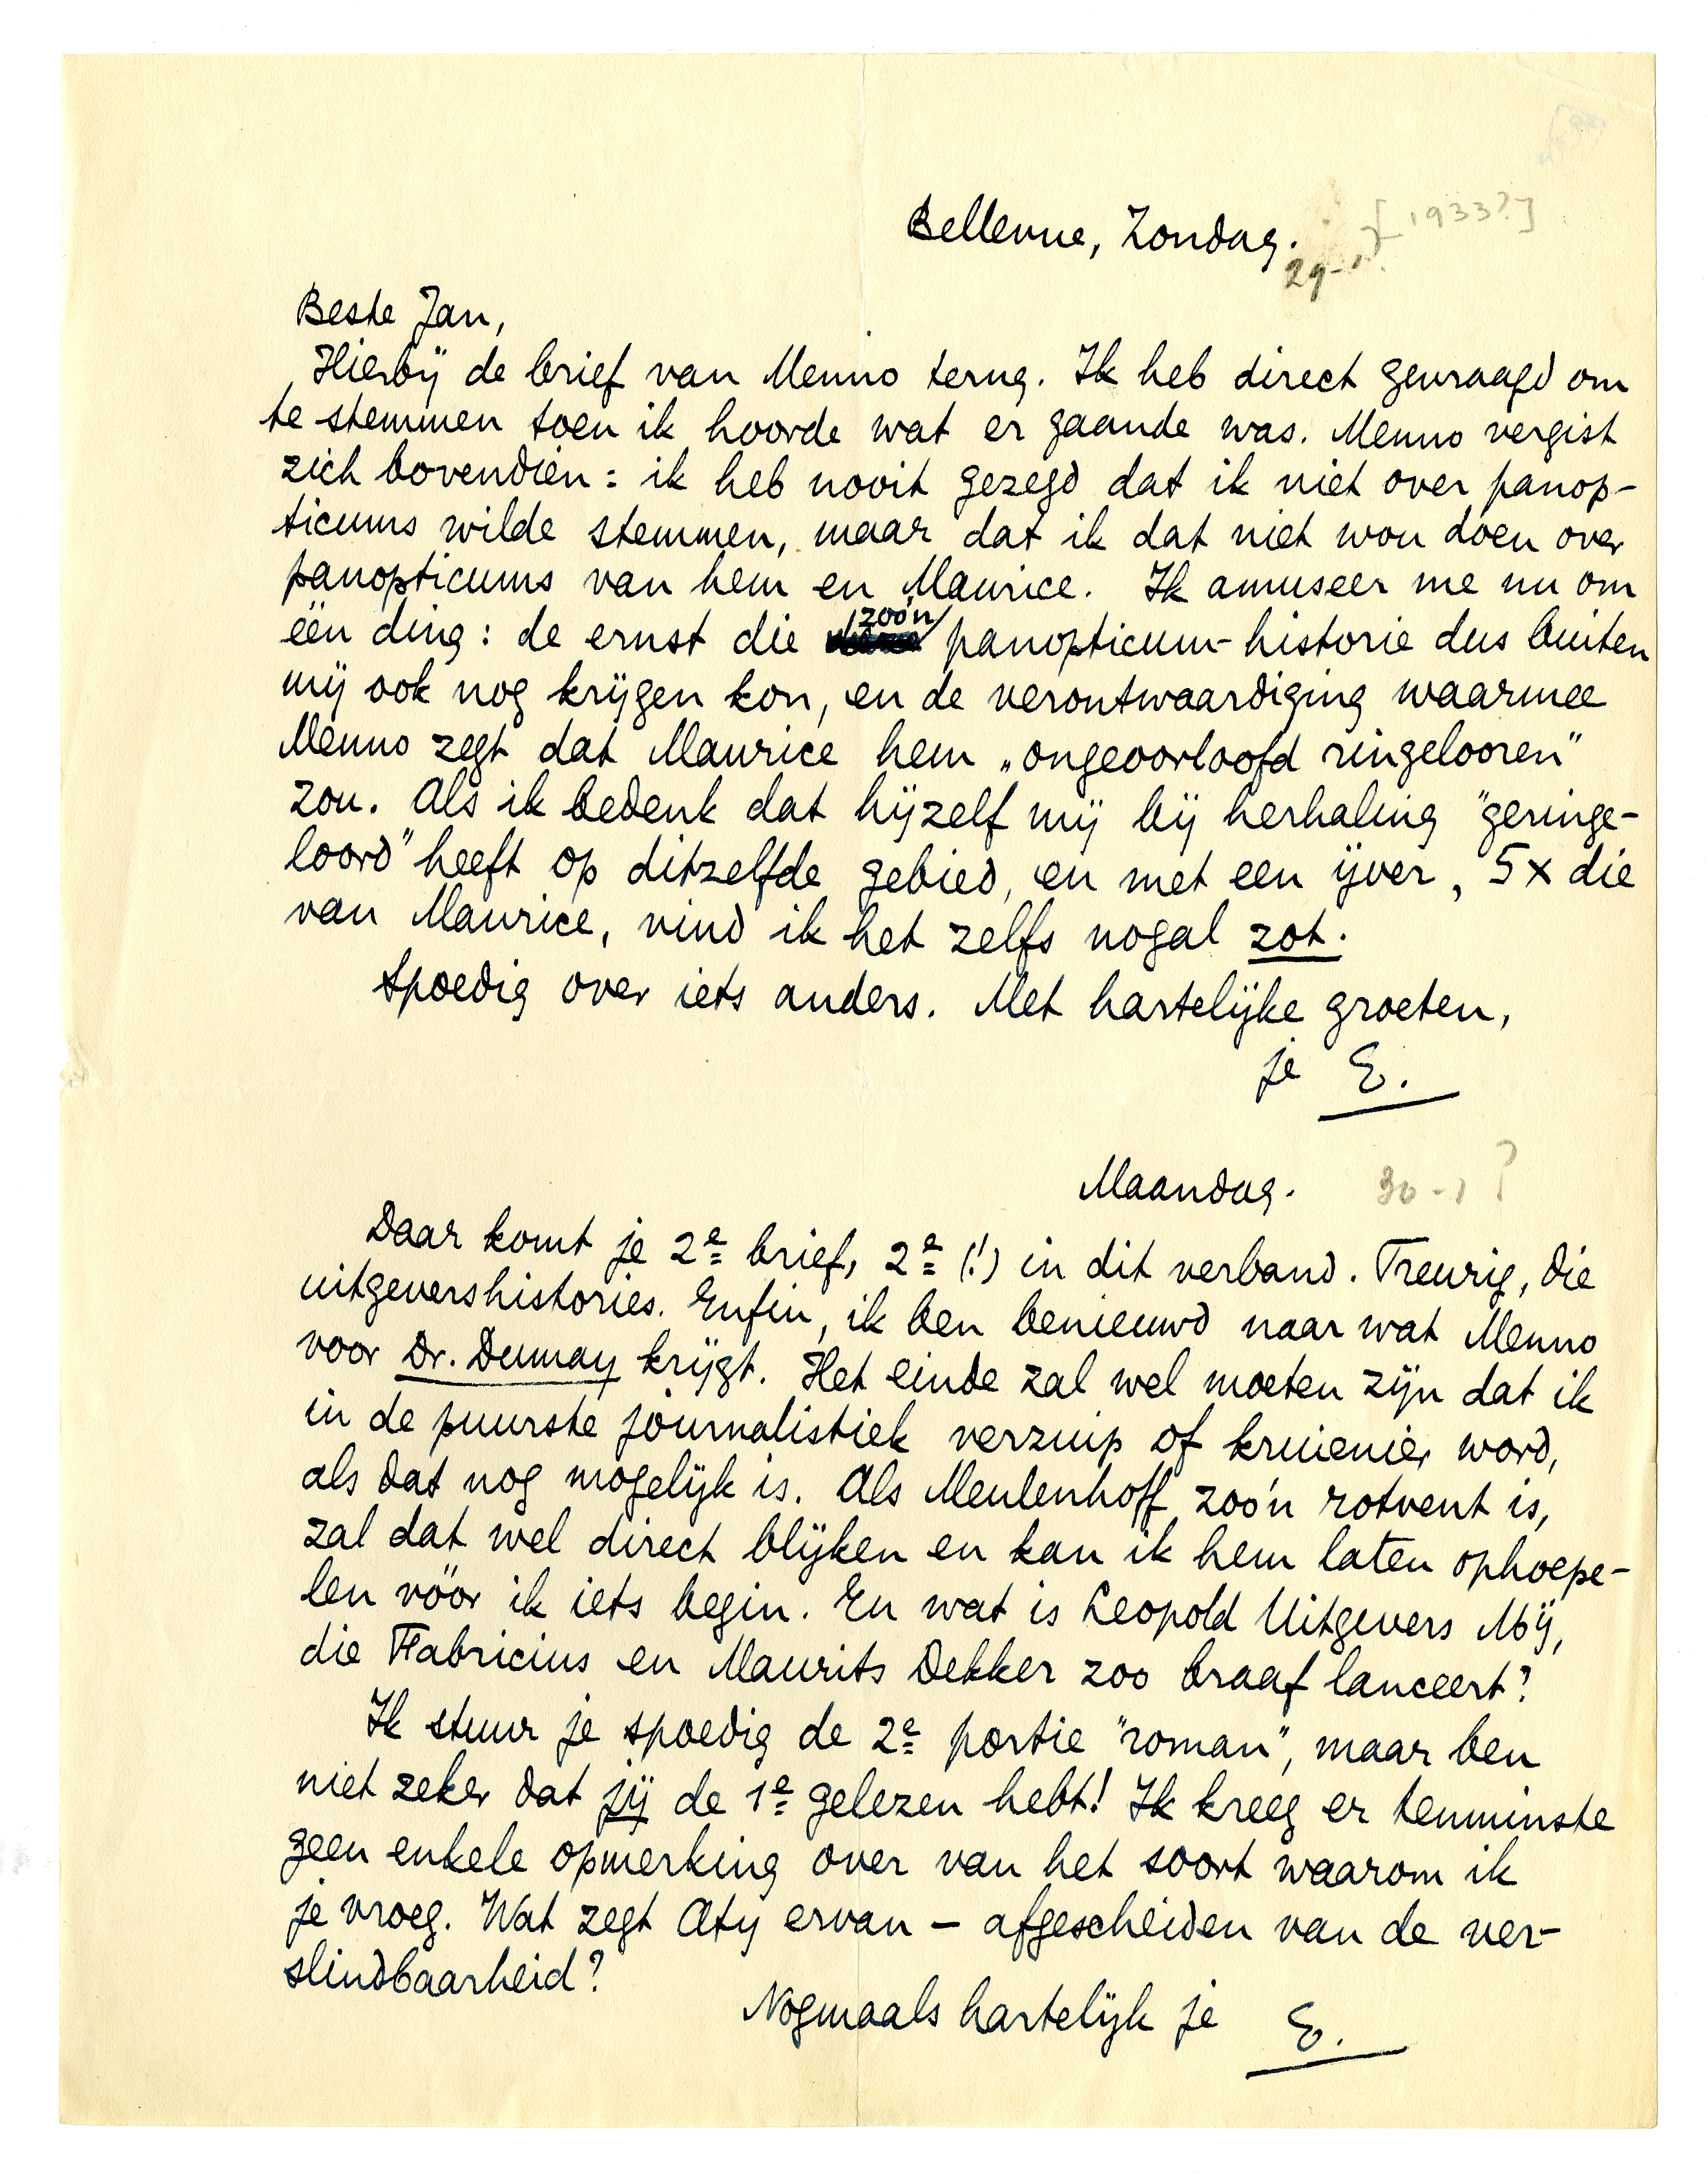 Bellevue, Zondag. [1933?]
29-1
Beste Jan,
Hierbij de brief van Menno terug. Ik heb direct gevraagd om
te stemmen toen ik hoorde wat er gaande was. Menno vergist
zich bovendien: ik heb nooit gezegd dat ik niet over panop-
ticums wilde stemmen, maar dat ik dat niet wou doen over
panopticums van hem en Maurice. Ik amuseer me nu om
één ding: de ernst die zoo'n panopticum-historie dus buiten
mij ook nog krijgen kon, en de verontwaardiging waarmee
Menno zegt dat Maurice hem „ongeoorloofd ringelooren"
zou. Als ik bedenk dat hijzelf mij bij herhaling "geringe-
loord" heeft op ditzelfde gebied, en met een ijver, 5 x die
van Maurice, vind ik het zelfs nogal zot.
Spoedig over iets anders. Met hartelijke groeten,
je E.
Maandag. 30-1?
Daar komt je 2e brief, 2e (!) in dit verband. Treurig, die
uitgevershistories. Enfin, ik ben benieuwd naar wat Menno
voor Dr. Dumay krijgt. Het einde zal wel moeten zijn dat ik
in de puurste journalistiek verzuip of kruienier word,
als dat nog mogelijk is. Als Meulenhoff zoo'n rotvent is,
zal dat wel direct blijken en kan ik hem laten ophoepe-
len vóór ik iets begin. En wat is Leopold Uitgevers Mij,
die Fabricius en Maurits Dekker zoo braaf lanceert?
Ik stuur je spoedig de 2e portie "roman", maar ben
niet zeker dat jij de 1e gelezen hebt! Ik kreeg er tenminste
geen enkele opmerking over van het soort waarom ik
je vroeg. Wat zegt Aty ervan – afgescheiden van de ver-
slindbaarheid?
Nogmaals hartelijk je E.